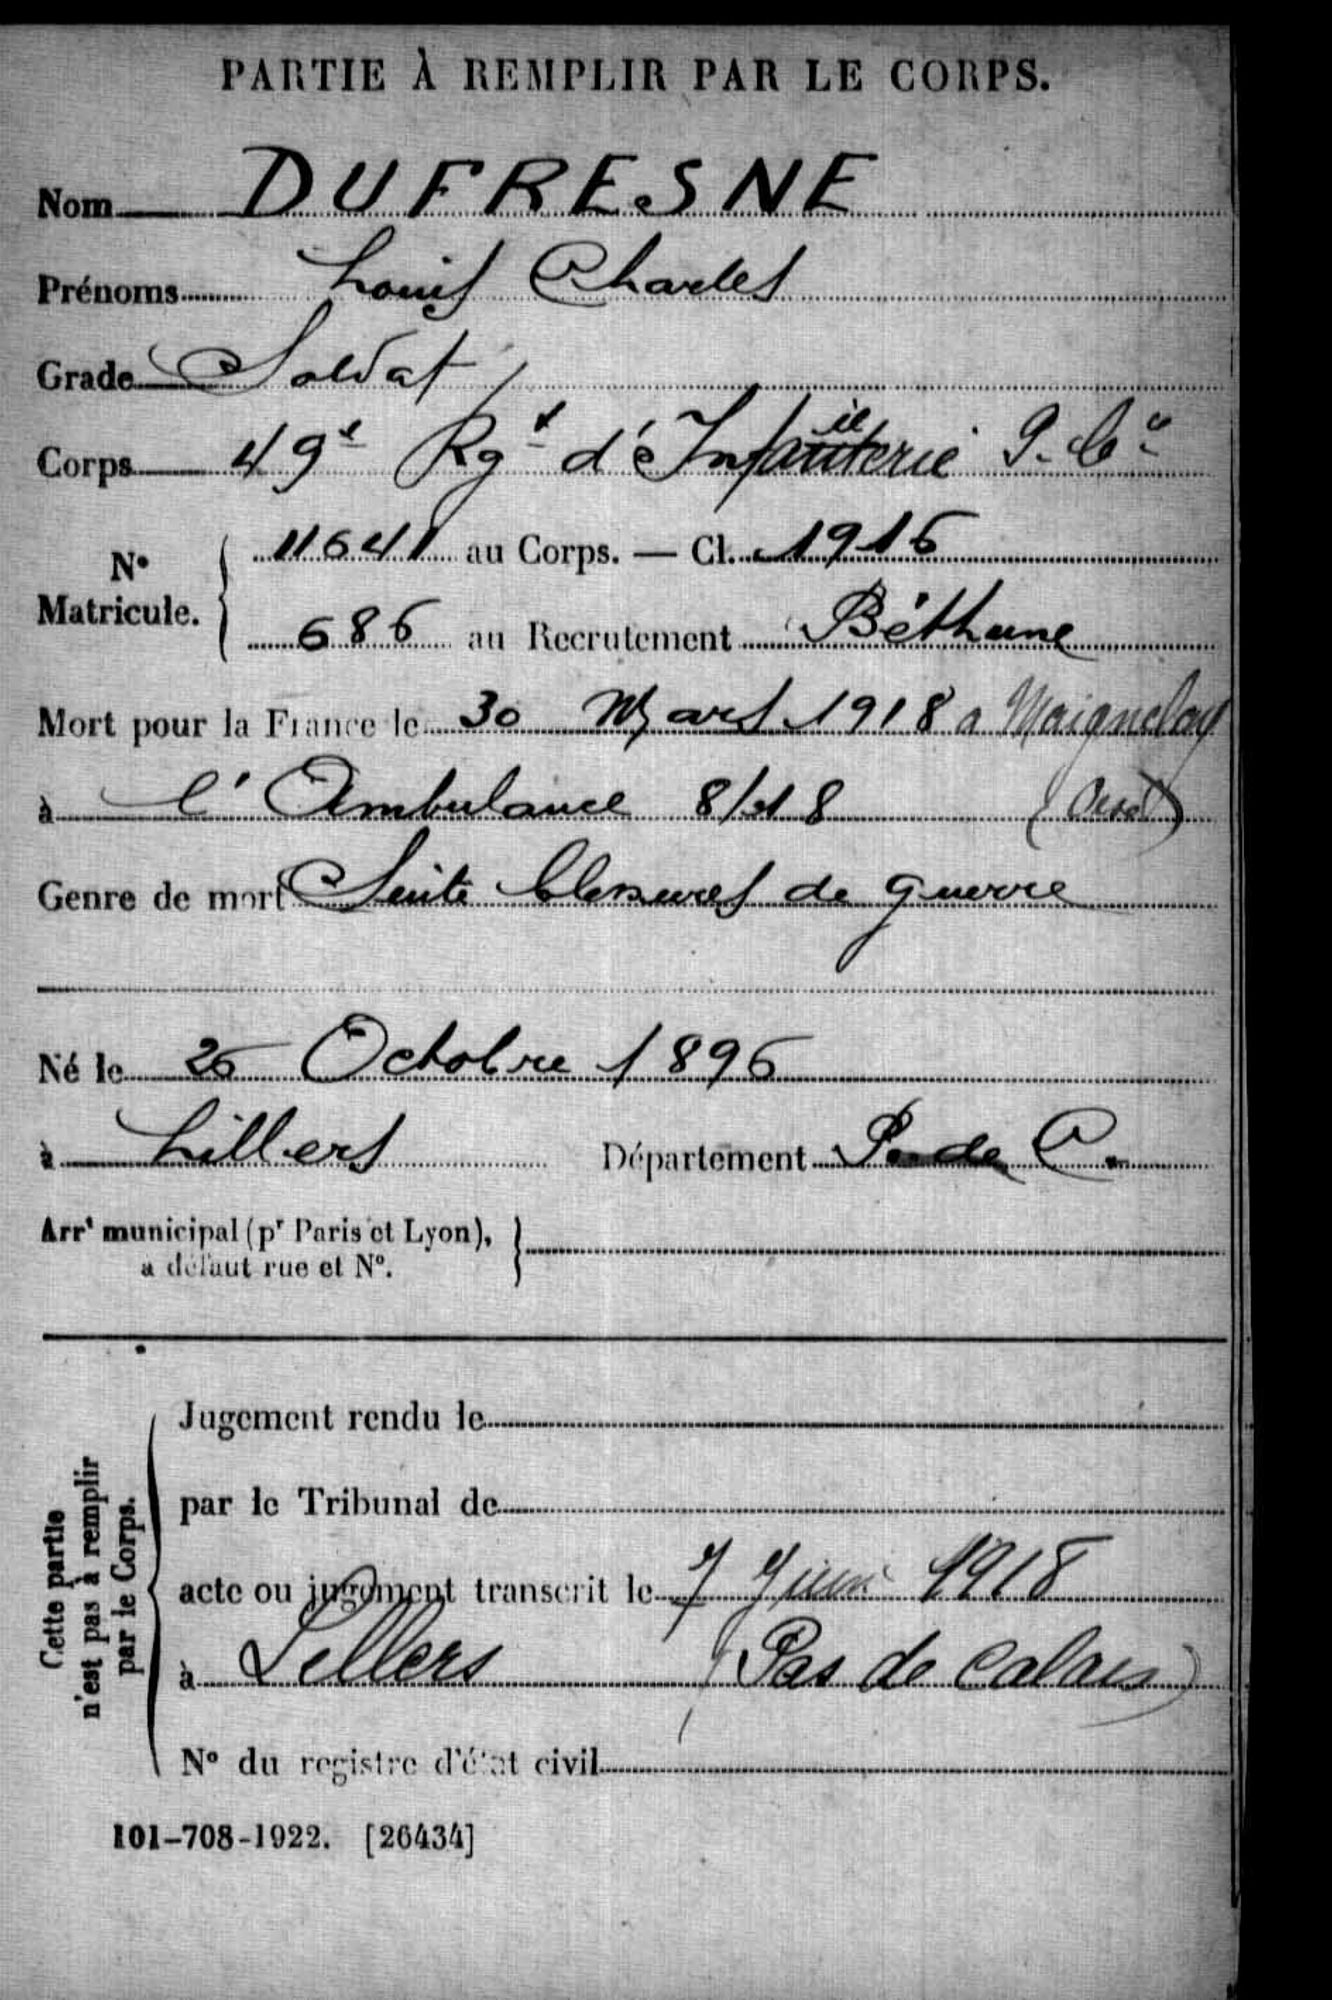 PARTIE À REMPLIR PAR LE CORPS.
Nom DUFRESNE
Prénoms Louis Charles
Grade Soldat
Corps 49e Rgt d'Infanterie
N° Matricule. 11641 au Corps. — Cl. 1916
686 au Recrutement Béthune
Mort pour la France le 30 Mars 1918 a Maignelay
à l'Ambulance 8/18 (Oise)
Genre de mort Suite blessures de guerre
Né le 26 Octobre 1896
à Lillers Département P. de C.
Arrt municipal (pr Paris et Lyon),
à défaut rue et N°.
Cette partie
n'est pas à remplir
par le Corps.
Jugement rendu le
par le Tribunal de
acte ou jugement transcrit le 7 Juin 1918
à Lillers (Pas de Calais)
N° du registre d'état civil
101-708-1922. [26434]